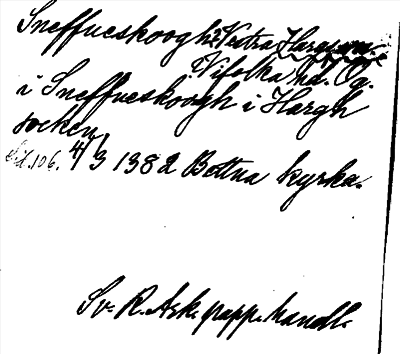 Sneffueskoogh? Västra Hargs sn.
Vifolka hd. Ög.
i Sneffueskoogh i Hargh
socken,
Sid. 106. 4/3 1382 Bottna kyrka.
Sv. R. Ark. papp. handl.